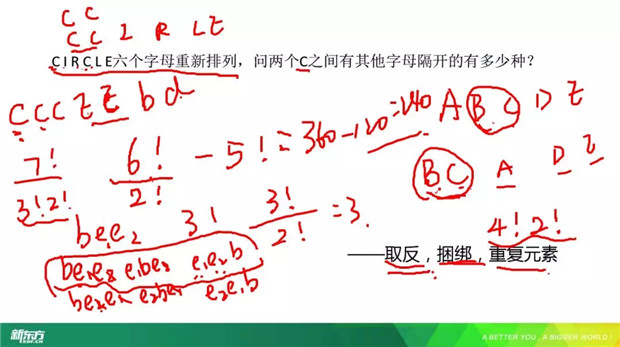 CC
CC I R LE
CIRCLE六个字母重新排列，问两个C之间有其他字母隔开的有多少种？
CCCEEbd
7!/3!2! 6!/2! - 5! = 360-120=240
A BC D E
BC A D E
bee₂ 3! 3!/2! =3
4!2!
be₁e₂ e₁be₂ e₁e₂b
be₂e₁ e₂be₁ e₂e₁b
——取反，捆绑，重复元素
新东方
XDF.CN
A BETTER YOU , A BIGGER WORLD !